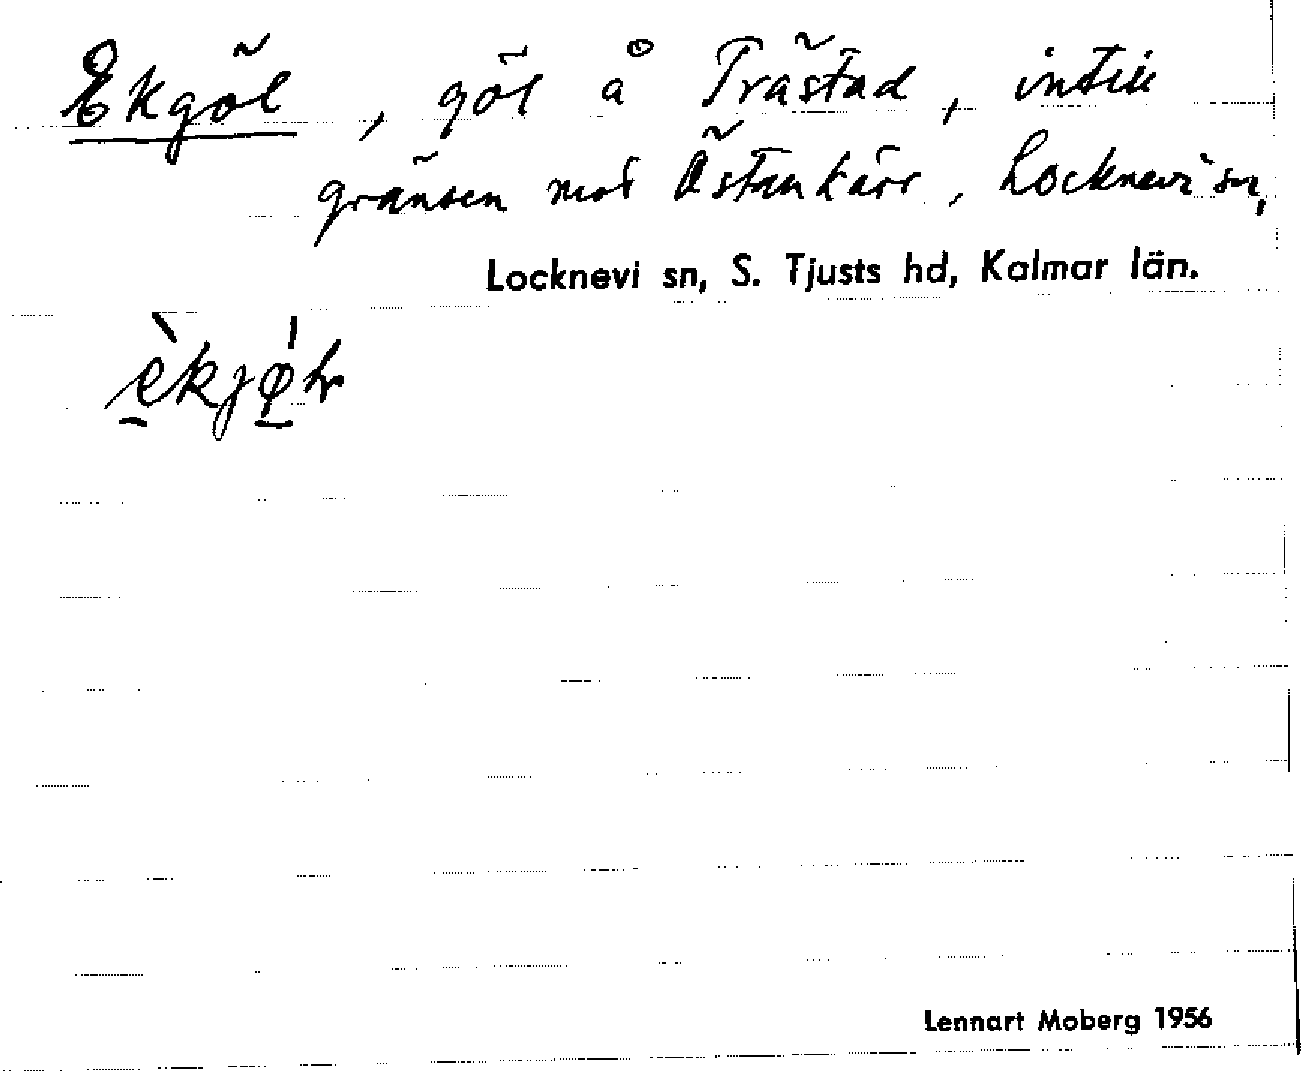 Ekgöl, göl å Trästad, intill
gränsen mot Östankärr, Locknevi sn,
Locknevi sn, S. Tjusts hd, Kalmar län.
Lennart Moberg 1956